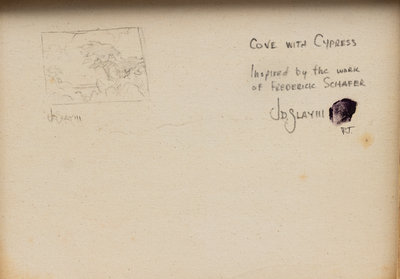 Cove with Cypress
Inspired by the work
of Frederick Schafer
JDSlayIII
JDSlayIII
P.J.